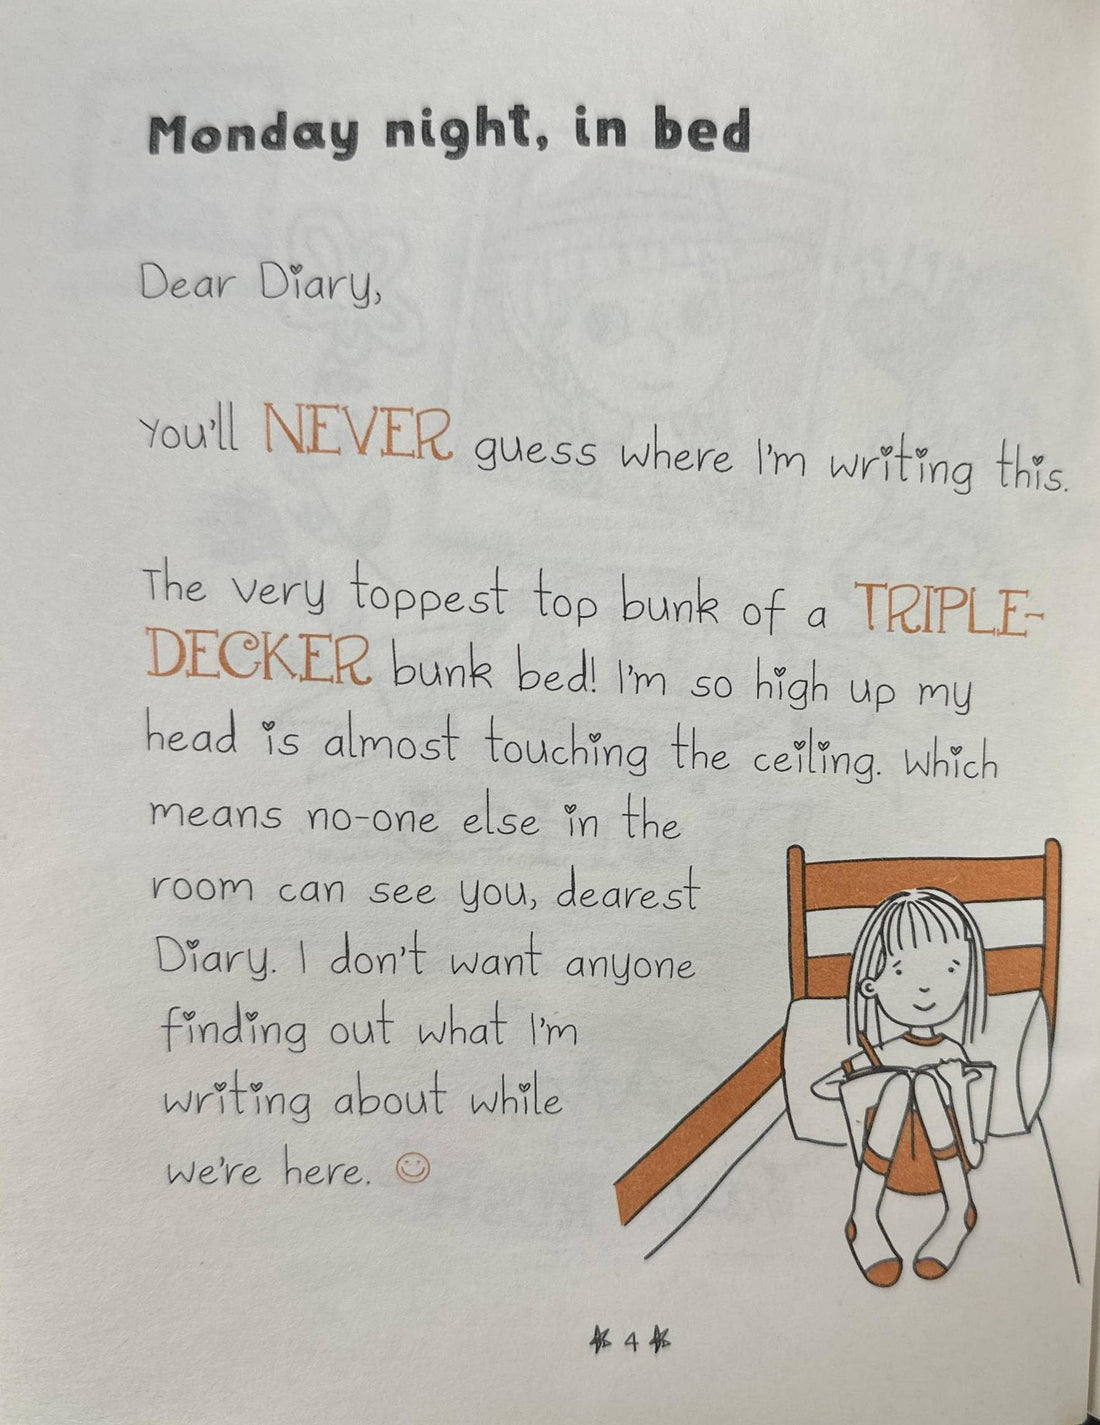 Monday night, in bed
Dear Diary,
You'll NEVER guess where I'm writing this.
The very toppest top bunk of a TRIPLE-
DECKER bunk bed! I'm so high up my
head is almost touching the ceiling. Which
means no-one else in the
room can see you, dearest
Diary. I don't want anyone
finding out what I'm
writing about while
we're here. ☺
4